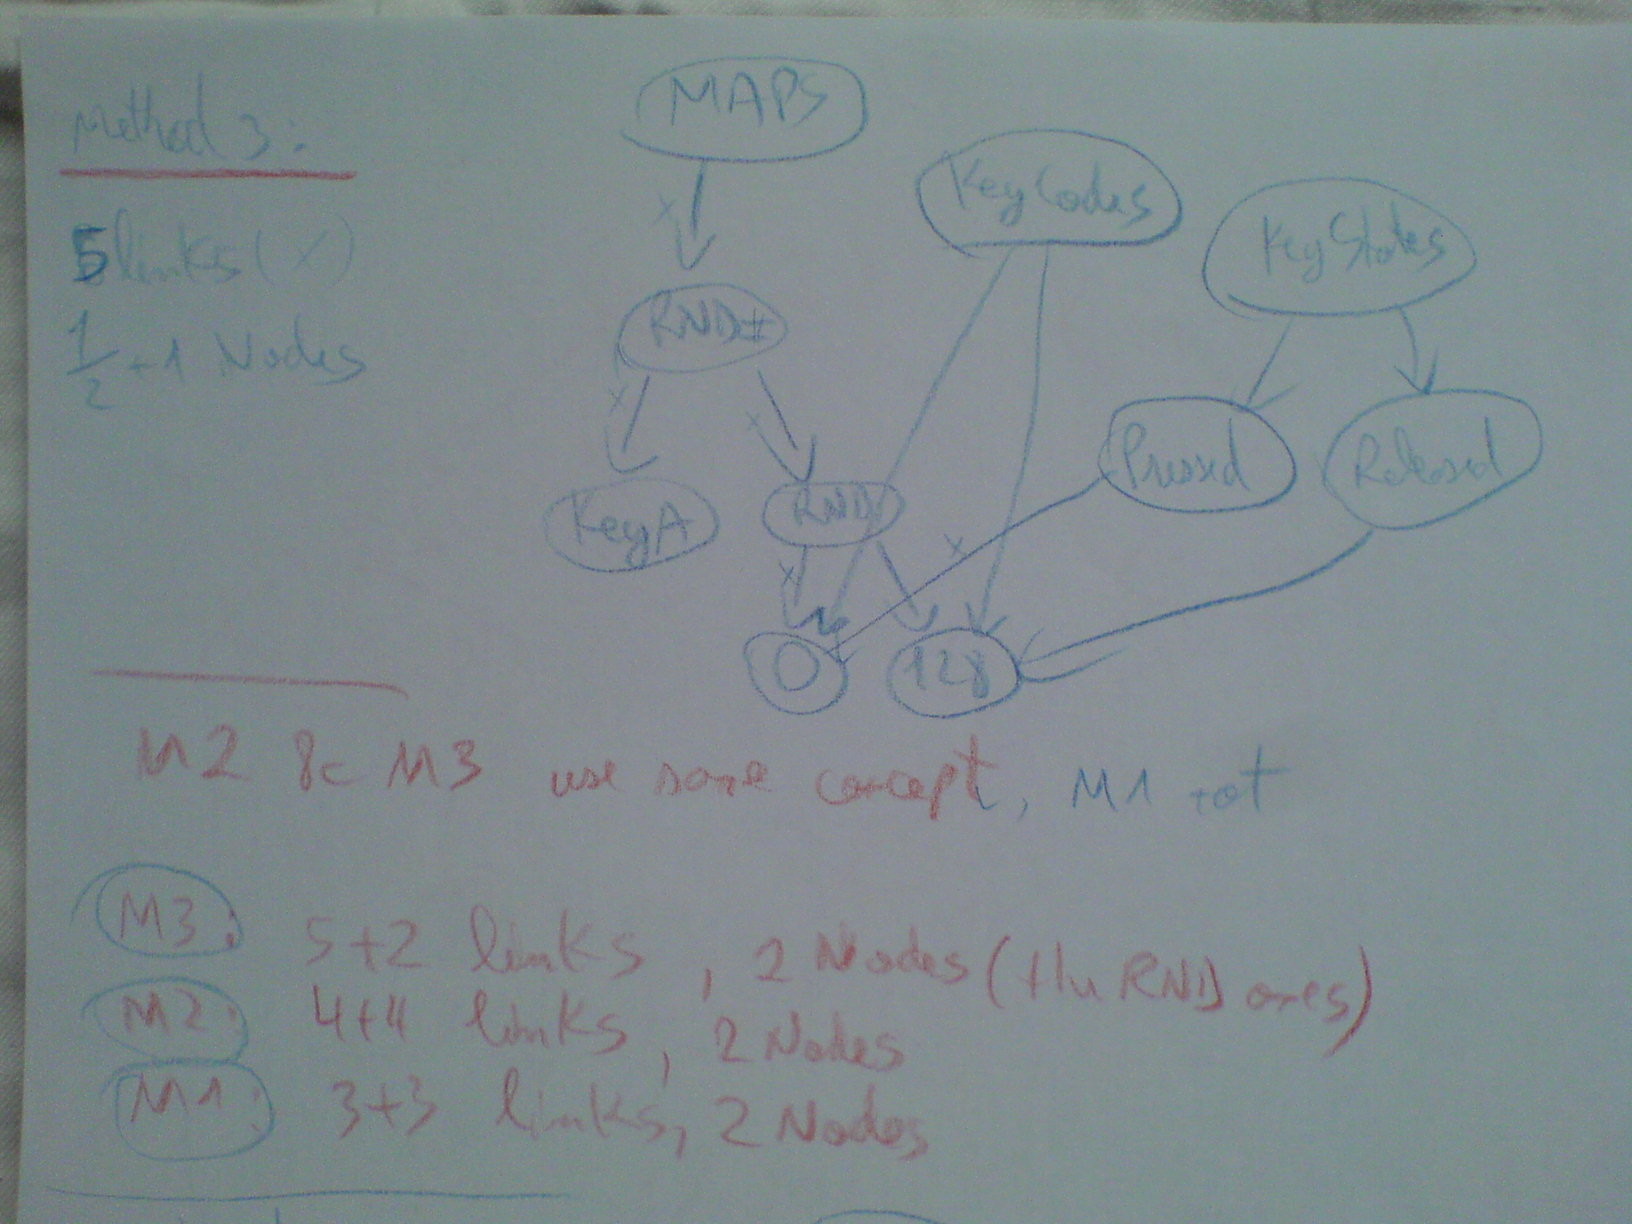 Method 3:
5 links (x)
1/2 + 1 Nodes
MAPS
KeyCodes
KeyStates
x
RND#
x
x
Pressed
Released
KeyA
RND
x
x
0
128
M2 & M3 use same concept, M1 not
M3: 5+2 links, 2 Nodes (the RND ones)
M2: 4+4 links, 2 Nodes
M1: 3+3 links, 2 Nodes